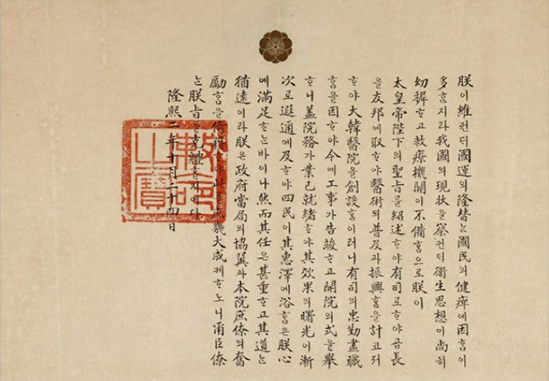 朕이維컨ᄃᆡ國運의隆替ᄂᆞᆫ國民의健瘁에因ᄒᆞᆷ이
多ᄒᆞᆫ지라我國의現狀을察컨ᄃᆡ衛生思想이尙히
幼穉ᄒᆞ고救療機關이不備ᄒᆞᆷ으로朕이
太皇帝陛下의聖旨를紹述ᄒᆞ야有司로ᄒᆞ야곰長
을友邦에取ᄒᆞ야醫術의普及과振興ᄒᆞᆷ을計코저
ᄒᆞ야大韓醫院을創設ᄒᆞᆷ이러니有司의忠勤盡職
ᄒᆞᆷ을因ᄒᆞ야今에工事가告竣ᄒᆞ고開院의式을擧
ᄒᆞ니盖院務가業已就緖ᄒᆞ야其效果의曙光이漸
次로遐邇에及ᄒᆞ야四民이其惠澤에浴ᄒᆞᆷ은朕心
에滿足ᄒᆞᄂᆞᆫ바이나然而其任은甚重ᄒᆞ고其道ᄂᆞᆫ
猶遠이라朕은政府當局의協翼과本院庶僚의奮
勵ᄒᆞᆷ을倚 大成케ᄒᆞ노니爾臣僚
ᄂᆞᆫ朕旨를
隆熙二年十月二十四日
勅命之寶